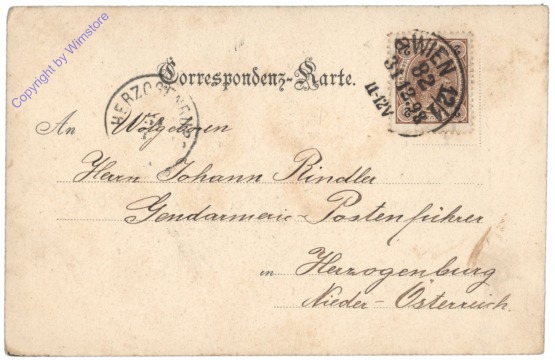 Copyright by Wimstore
Correspondenz-Karte.
WIEN 12/1
82
31.12.98
11-12V
HERZOGENBURG
An Wolgeboren
Herrn Johann Rindler
Gendarmerie-Postenführer
in Herzogenburg
Nieder-Österreich.